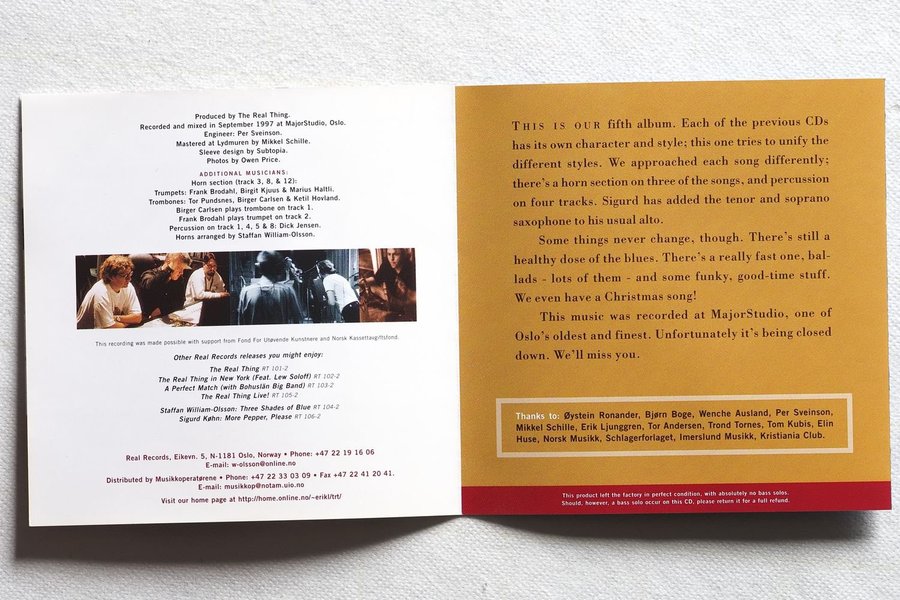 Produced by The Real Thing.
Recorded and mixed in September 1997 at MajorStudio, Oslo.
Engineer: Per Sveinson.
Mastered at Lydmuren by Mikkel Schille.
Sleeve design by Subtopia.
Photos by Owen Price.
ADDITIONAL MUSICIANS:
Horn section (track 3, 8, & 12):
Trumpets: Frank Brodahl, Birgit Kjuus & Marius Haltli.
Trombones: Tor Pundsnes, Birger Carlsen & Ketil Hovland.
Birger Carlsen plays trombone on track 1.
Frank Brodahl plays trumpet on track 2.
Percussion on track 1, 4, 5 & 8: Dick Jensen.
Horns arranged by Staffan William-Olsson.
This recording was made possible with support from Fond For Utøvende Kunstnere and Norsk Kassettavgiftsfond.
Other Real Records releases you might enjoy:
The Real Thing RT 101-2
The Real Thing in New York (Feat. Lew Soloff) RT 102-2
A Perfect Match (with Bohuslän Big Band) RT 103-2
The Real Thing Live! RT 105-2
Staffan William-Olsson: Three Shades of Blue RT 104-2
Sigurd Køhn: More Pepper, Please RT 106-2
Real Records, Eikevn. 5, N-1181 Oslo, Norway • Phone: +47 22 19 16 06
E-mail: w-olsson@online.no
Distributed by Musikkoperatørene • Phone: +47 22 33 03 09 • Fax +47 22 41 20 41.
E-mail: musikkop@notam.uio.no
Visit our home page at http://home.online.no/~erikl/trt/
THIS IS OUR fifth album. Each of the previous CDs
has its own character and style; this one tries to unify the
different styles. We approached each song differently;
there's a horn section on three of the songs, and percussion
on four tracks. Sigurd has added the tenor and soprano
saxophone to his usual alto.
Some things never change, though. There's still a
healthy dose of the blues. There's a really fast one, bal-
lads - lots of them - and some funky, good-time stuff.
We even have a Christmas song!
This music was recorded at MajorStudio, one of
Oslo's oldest and finest. Unfortunately it's being closed
down. We'll miss you.
Thanks to: Øystein Ronander, Bjørn Boge, Wenche Ausland, Per Sveinson,
Mikkel Schille, Erik Ljunggren, Tor Andersen, Trond Tornes, Tom Kubis, Elin
Huse, Norsk Musikk, Schlagerforlaget, Imerslund Musikk, Kristiania Club.
This product left the factory in perfect condition, with absolutely no bass solos.
Should, however, a bass solo occur on this CD, please return it for a full refund.